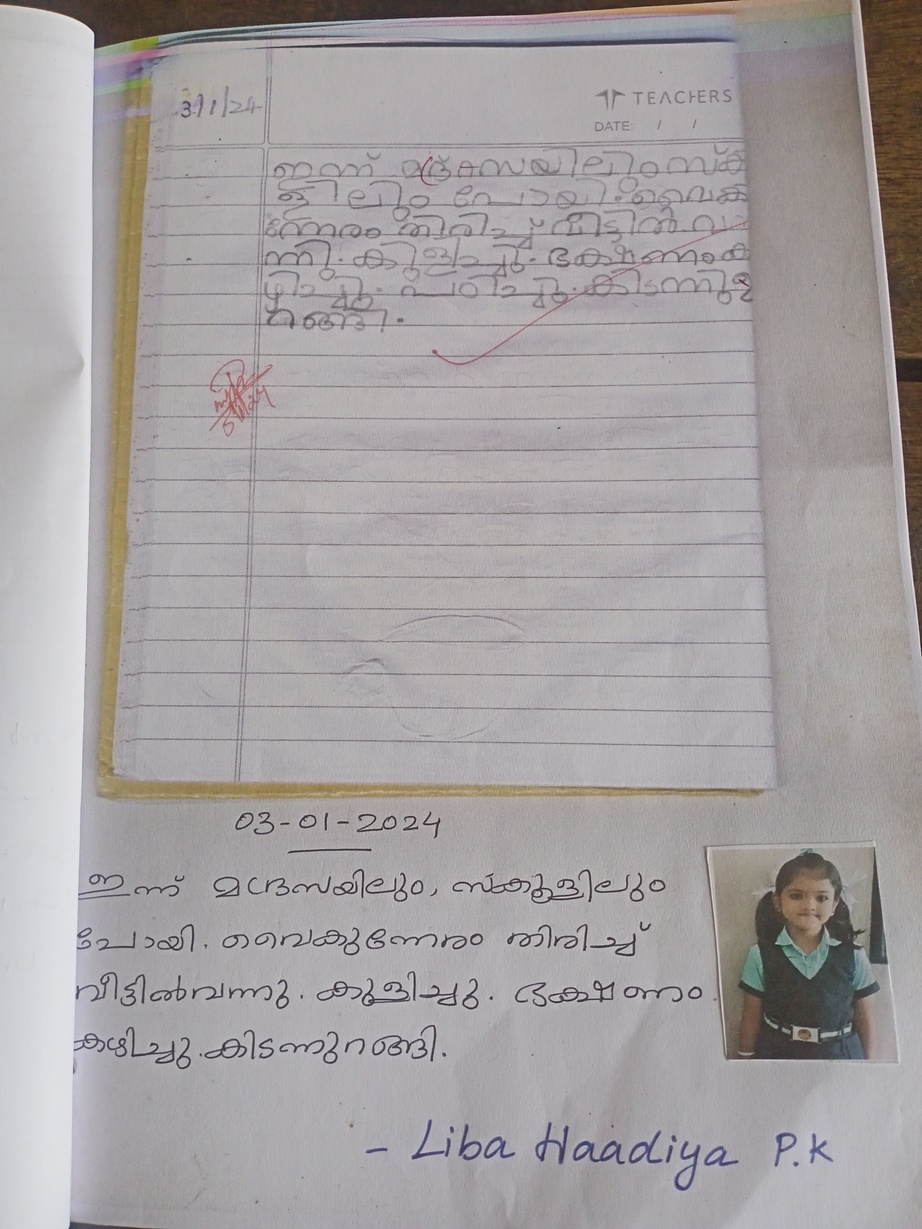 3/1/24
TEACHERS
DATE: / /
ഇന്ന് മദ്രസയിലും സ്കൂ
ളിലും പോയി. വൈകു
ന്നേരം തിരിച്ച് വീട്ടിൽ വ
ന്നു. കുളിച്ചു. ഭക്ഷണം ക
ഴിച്ചു. പഠിച്ചു. കിടന്നു
റങ്ങി.
03-01-2024
ഇന്ന് മദ്രസയിലും, സ്കൂളിലും
പോയി. വൈകുന്നേരം തിരിച്ച്
വീട്ടിൽവന്നു. കുളിച്ചു. ഭക്ഷണം
കഴിച്ചു. കിടന്നുറങ്ങി.
- Liba Haadiya P.K